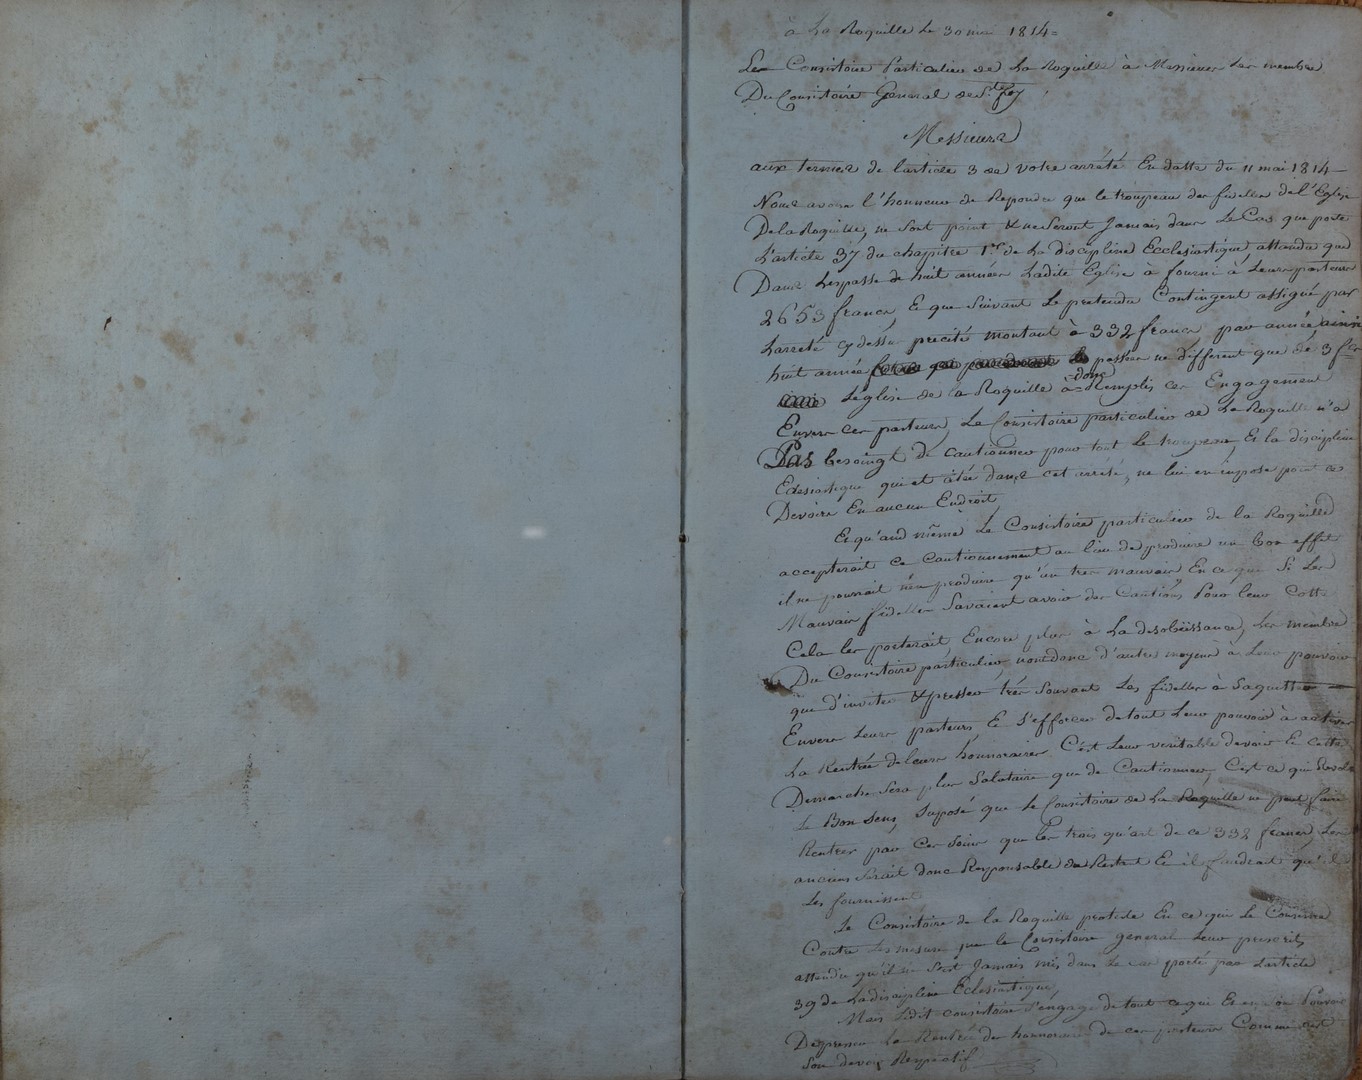 à La Roquille Le 30 mai 1814=
Les Consistoire Particulier de La Roquille à Messieurs Les membre
Du Consistoire General de Ste foy
Messieurs
aux termes de l'article 3 de votre arrété En datte du 11 mai 1814
Nous avons l'honneur de Repondre que le troupeau des fidelles de l'Eglise
De la Roquille, ne sont point & ne Seront Jamais dans Le Cas que porte
L'article 37 du chapitre 1er de La discipline Ecclesiastique, attendu que
Dans Lespasse de huit années Ladite Eglise à fourni à Leurs pasteurs
2653 francs, E que Suivant Le pretendu Contingent assigné par
L'arreté cy dessus precité montant à 332 francs par année ainsi
huit année passées ne different que de 3 frs
Leglise de la Roquille à donc Remplis ces Engagement
Envers ces pasteurs, Le Consistoire particulier de La Roquille n'a
Pas besoingt de Cautionner pour tout Le troupeau Et la discipline
Eclesiastique qui et citée dans cet arrété, ne lui en impose point ces
Devoirs En aucun Endroit
Et qu'and même Le Consistoire particulier de la Roquille
accepterait ce Cautionnement au lieu de produire un bon effet
il ne pourrait n'en produire qu'un tres mauvais En ce que Si Les
Mauvais fidelles Savaient avoir des Cautions Pour leur Cotte
Cela les porterait Encore plus à La desobéissance, Les membre
Du Consistoire particulier nont donc d'autres moyens à Leur pouvoir
que d'inviter & presser très Souvent Les fidelles à Saquitter
Envers Leurs pasteurs E S'efforcer de tout Leur pouvoir à activer
La Rentrée de leurs honnoraires C'est Leur veritable devoir E Cette
Demarche Sera plus Salutaire que de Cautionner, C'est ce qui
Le Bon Sens, Suposé que Le Consistoire de La Roquille ne peut faire
Rentrer par Ces Soins que les trois qu'art de ce 332 francs, Les
anciens Serait donc Responsable du Restant E il faudrait qu'il
Les fournissent
Le Consistoire de la Roquille proteste En ce qui Le Conserne
Contre Les mesure que le Consistoire general Leur prescrits
attendu qu'il ne S'est Jamais mis dans Le cas porté par L'article
39 de La discipline Eclesiastique,
Mais Ledit consistoire S'engage de tout ce qui Est en Son Pouvoir
De presser la Rentrée des honnoraire de ces pasteurs Comme cest
Son devoir Respectif